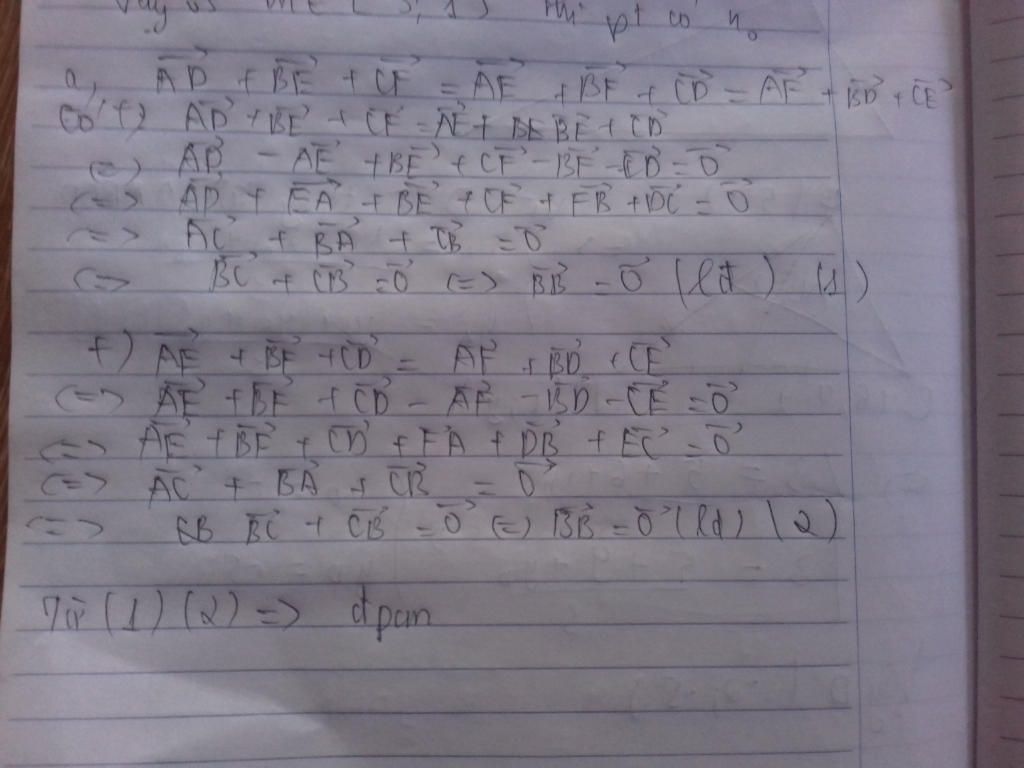 Vậy pt có n₀
a, $\overrightarrow{AD} + \overrightarrow{BE} + \overrightarrow{CF} = \overrightarrow{AE} + \overrightarrow{BF} + \overrightarrow{CD} = \overrightarrow{AF} + \overrightarrow{BD} + \overrightarrow{CE}$
Có +) $\overrightarrow{AD} + \overrightarrow{BE} + \overrightarrow{CF} = \overrightarrow{AE} + \overrightarrow{BF} + \overrightarrow{CD}$
(=) $\overrightarrow{AD} - \overrightarrow{AE} + \overrightarrow{BE} + \overrightarrow{CF} - \overrightarrow{BF} - \overrightarrow{CD} = \overrightarrow{0}$
<=> $\overrightarrow{AD} + \overrightarrow{EA} + \overrightarrow{BE} + \overrightarrow{CF} + \overrightarrow{FB} + \overrightarrow{DC} = \overrightarrow{0}$
<=> $\overrightarrow{AC} + \overrightarrow{BA} + \overrightarrow{CB} = \overrightarrow{0}$
<=> $\overrightarrow{BC} + \overrightarrow{CB} = \overrightarrow{0}$ <=> $\overrightarrow{BB} = \overrightarrow{0}$ (lđ) (1)
+) $\overrightarrow{AE} + \overrightarrow{BF} + \overrightarrow{CD} = \overrightarrow{AF} + \overrightarrow{BD} + \overrightarrow{CE}$
<=> $\overrightarrow{AE} + \overrightarrow{BF} + \overrightarrow{CD} - \overrightarrow{AF} - \overrightarrow{BD} - \overrightarrow{CE} = \overrightarrow{0}$
<=> $\overrightarrow{AE} + \overrightarrow{BF} + \overrightarrow{CD} + \overrightarrow{FA} + \overrightarrow{DB} + \overrightarrow{EC} = \overrightarrow{0}$
<=> $\overrightarrow{AC} + \overrightarrow{BA} + \overrightarrow{CB} = \overrightarrow{0}$
<=> $\overrightarrow{BC} + \overrightarrow{CB} = \overrightarrow{0}$ (=) $\overrightarrow{BB} = \overrightarrow{0}$ (lđ) (2)
Từ (1) (2) => đpcm